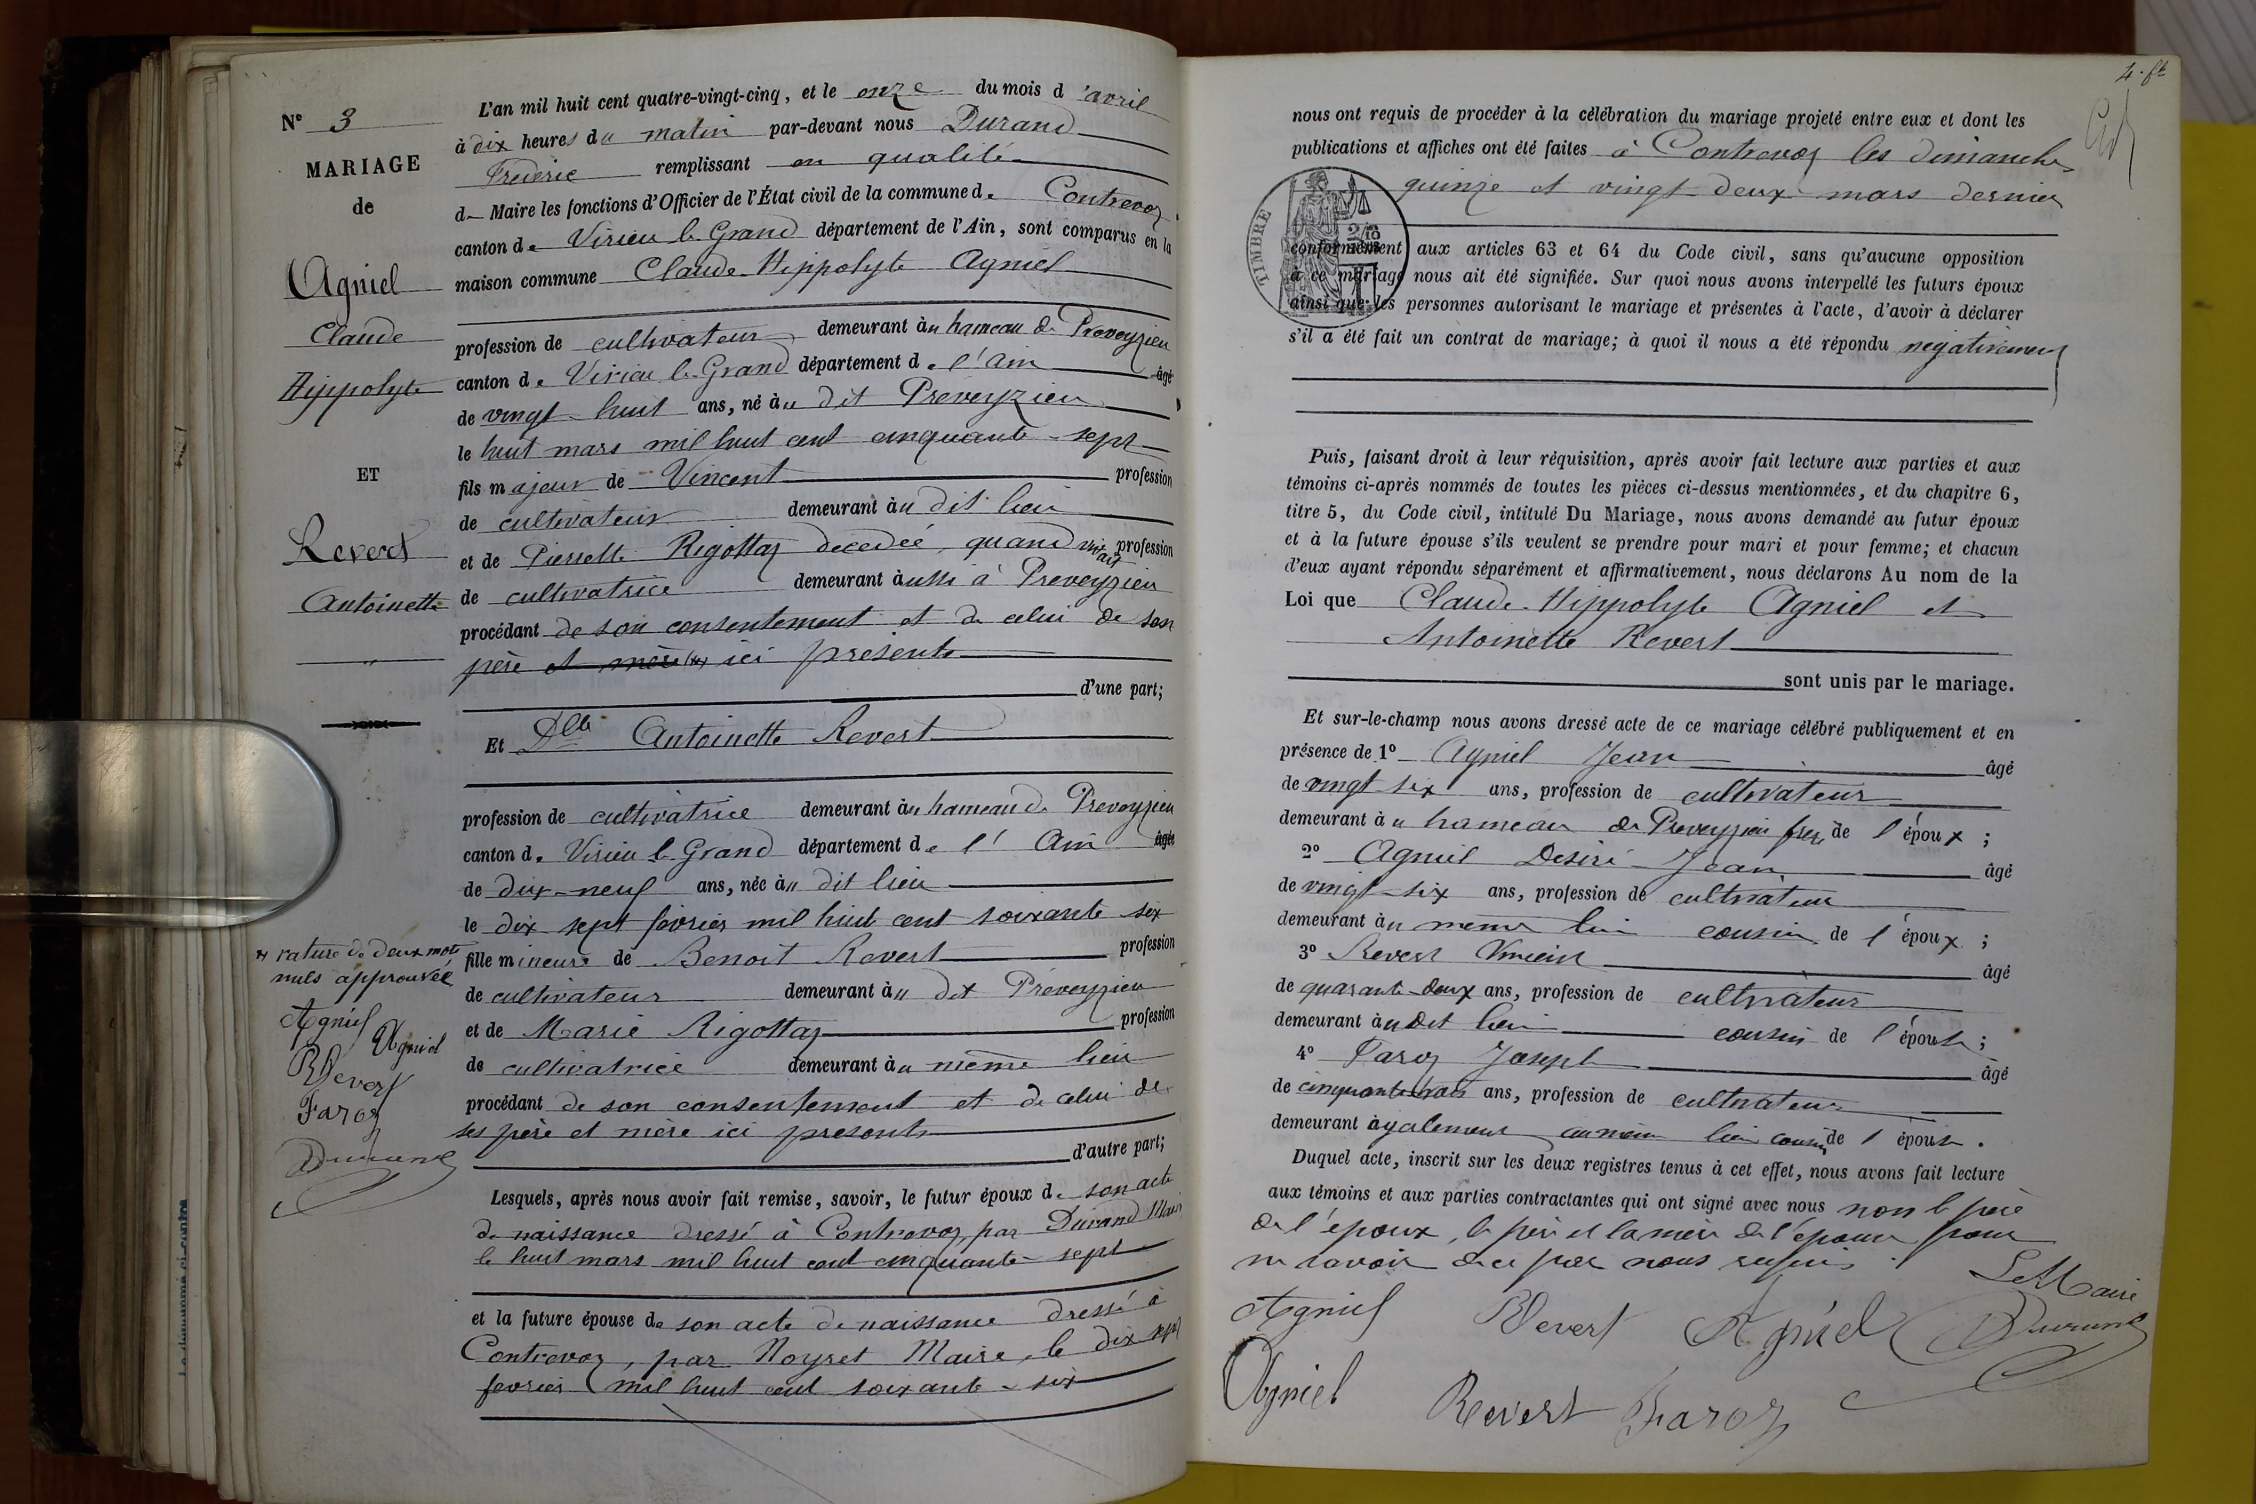 N° 3
MARIAGE
de
Agniel
Claude
Hippolyte
ET
Revert
Antoinette
"
rature de deux mots
nuls approuvée
Agniel
Agniel
Revert
Faroz
Durand
L'an mil huit cent quatre-vingt-cinq, et le onze du mois d'avril
à dix heures du matin par-devant nous Durand
Fréderic remplissant en qualité
de Maire les fonctions d'Officier de l'État civil de la commune de Contrevoz
canton de Virieu le Grand département de l'Ain, sont comparus en la
maison commune Claude-Hippolyte Agniel
profession de cultivateur demeurant au hameau de Preveyzieu
canton de Virieu le Grand département de l'Ain âgé
de vingt huit ans, né au dit Preveyzieu
le huit mars mil huit cent cinquante-sept
fils majeur de Vincent profession
de cultivateur demeurant au dit lieu
et de Pierrette Rigottaz decedée, quand vivait profession
de cultivatrice demeurant aussi à Preveyzieu
procédant de son consentement et de celui de son
père et mère (x) ici présents
d'une part;
Et Dlle Antoinette Revert
profession de cultivatrice demeurant au hameau de Preveyzieu
canton de Virieu le Grand département de l'Ain âgée
de dix-neuf ans, née au dit lieu
le dix sept février mil huit cent soixante six
fille mineure de Benoit Revert profession
de cultivateur demeurant au dit Préveyzieu
et de Marie Rigottaz profession
de cultivatrice demeurant au même lieu
procédant de son consentement et de celui de
ses père et mère ici présents
d'autre part;
Lesquels, après nous avoir fait remise, savoir, le futur époux de son acte
de naissance dressé à Contrevoz, par Durand Maire
le huit mars mil huit cent cinquante-sept
et la future épouse de son acte de naissance dressé à
Contrevoz, par Noyret Maire, le dix sept
fevrier mil huit cent soixante-six
nous ont requis de procéder à la célébration du mariage projeté entre eux et dont les
publications et affiches ont été faites à Contrevoz les dimanches
quinze et vingt deux mars dernier
TIMBRE
conformément aux articles 63 et 64 du Code civil, sans qu'aucune opposition
à ce mariage nous ait été signifiée. Sur quoi nous avons interpellé les futurs époux
ainsi que les personnes autorisant le mariage et présentes à l'acte, d'avoir à déclarer
s'il a été fait un contrat de mariage; à quoi il nous a été répondu négativement
Puis, faisant droit à leur réquisition, après avoir fait lecture aux parties et aux
témoins ci-après nommés de toutes les pièces ci-dessus mentionnées, et du chapitre 6,
titre 5, du Code civil, intitulé Du Mariage, nous avons demandé au futur époux
et à la future épouse s'ils veulent se prendre pour mari et pour femme; et chacun
d'eux ayant répondu séparément et affirmativement, nous déclarons Au nom de la
Loi que Claude-Hippolyte Agniel et
Antoinette Revert
sont unis par le mariage.
Et sur-le-champ nous avons dressé acte de ce mariage célébré publiquement et en
présence de 1° Agniel Jean âgé
de vingt six ans, profession de cultivateur
demeurant au hameau de Preveyzieu frère de l'époux;
2° Agniel Desiré Jean âgé
de vingt-six ans, profession de cultivateur
demeurant au meme lieu cousin de l'époux;
3° Revert Vincent âgé
de quarante-deux ans, profession de cultivateur
demeurant au dit lieu cousin de l'épouse;
4° Faroz Joseph âgé
de cinquante trois ans, profession de cultivateur
demeurant également au même lieu cousin de l'épouse.
Duquel acte, inscrit sur les deux registres tenus à cet effet, nous avons fait lecture
aux témoins et aux parties contractantes qui ont signé avec nous non le père
de l'époux, le père et la mère de l'épouse pour
ne savoir de ce par nous requis.
Le Maire
Agniel Revert Agniel Durand
Agniel Revert Faroz